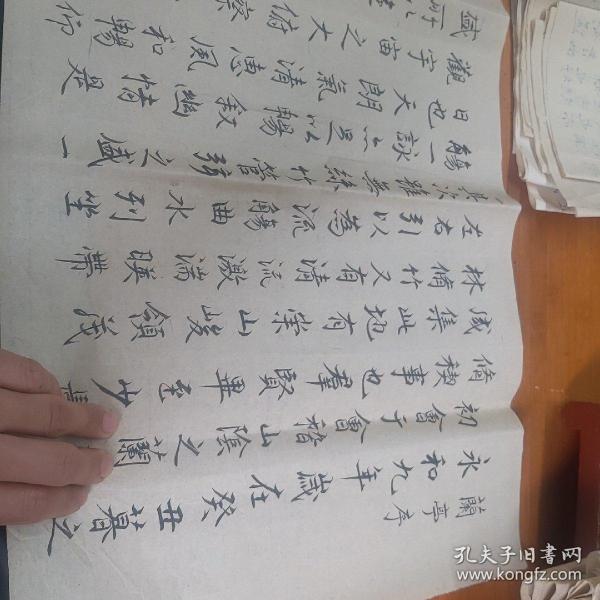 蘭亭序
永和九年歲在癸丑暮春之
初會于會稽山陰之蘭
脩稧事也羣賢畢至少長
咸集此地有崇山峻領茂
林脩竹又有清流激湍暎帶
左右引以為流觴曲水列坐
其次雖無絲竹管弦之盛一
觴一詠亦足以暢叙幽情是
日也天朗氣清惠風和暢仰
觀宇宙之大俯察
盛所
孔夫子旧书网
www.kongfz.com